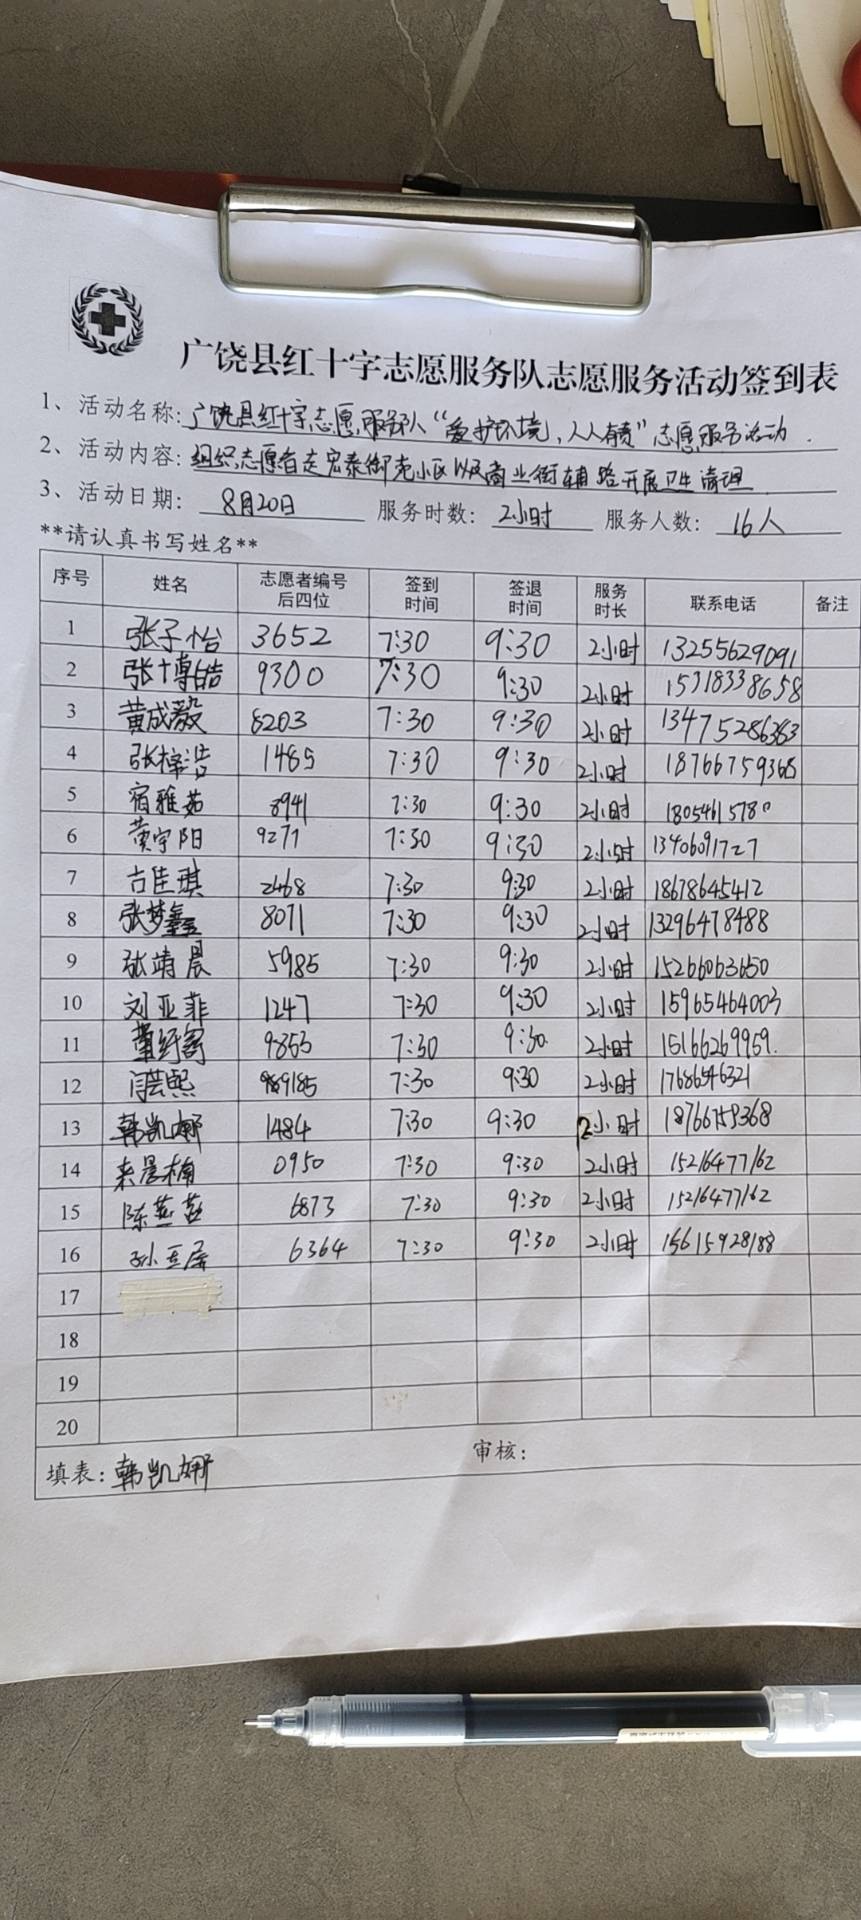 广饶县红十字志愿服务队志愿服务活动签到表
1、活动名称:广饶县红十字志愿服务队“爱护环境,人人有责”志愿服务活动.
2、活动内容:组织志愿者走宏泰御苑小区以及商业街辅路开展卫生清理
3、活动日期: 8月20日 服务时数: 2小时 服务人数: 16人
**请认真书写姓名**
序号 姓名 志愿者编号后四位 签到时间 签退时间 服务时长 联系电话 备注
1 张子怡 3652 7:30 9:30 2小时 13255629091
2 张博皓 9300 7:30 9:30 2小时 15318338658
3 黄成毅 8203 7:30 9:30 2小时 13475286363
4 张梓浩 1485 7:30 9:30 2小时 18766759368
5 宿雅茹 8941 7:30 9:30 2小时 18054615780
6 黄宇阳 9271 7:30 9:30 2小时 13406091727
7 古佳琪 2468 7:30 9:30 2小时 18678645412
8 张梦鑫 8071 7:30 9:30 2小时 13296478488
9 张靖晨 5985 7:30 9:30 2小时 15266063650
10 刘亚菲 1247 7:30 9:30 2小时 15965464003
11 9853 7:30 9:30 2小时 15166269959.
12 7:30 9:30 2小时 17686546321
13 韩凯娜 1484 7:30 9:30 2小时 18766759368
14 来晨楠 0950 7:30 9:30 2小时 15216477162
15 陈燕燕 6873 7:30 9:30 2小时 15216477162
16 6364 7:30 9:30 2小时 15615928188
17
18
19
20
填表:韩凯娜 审核: